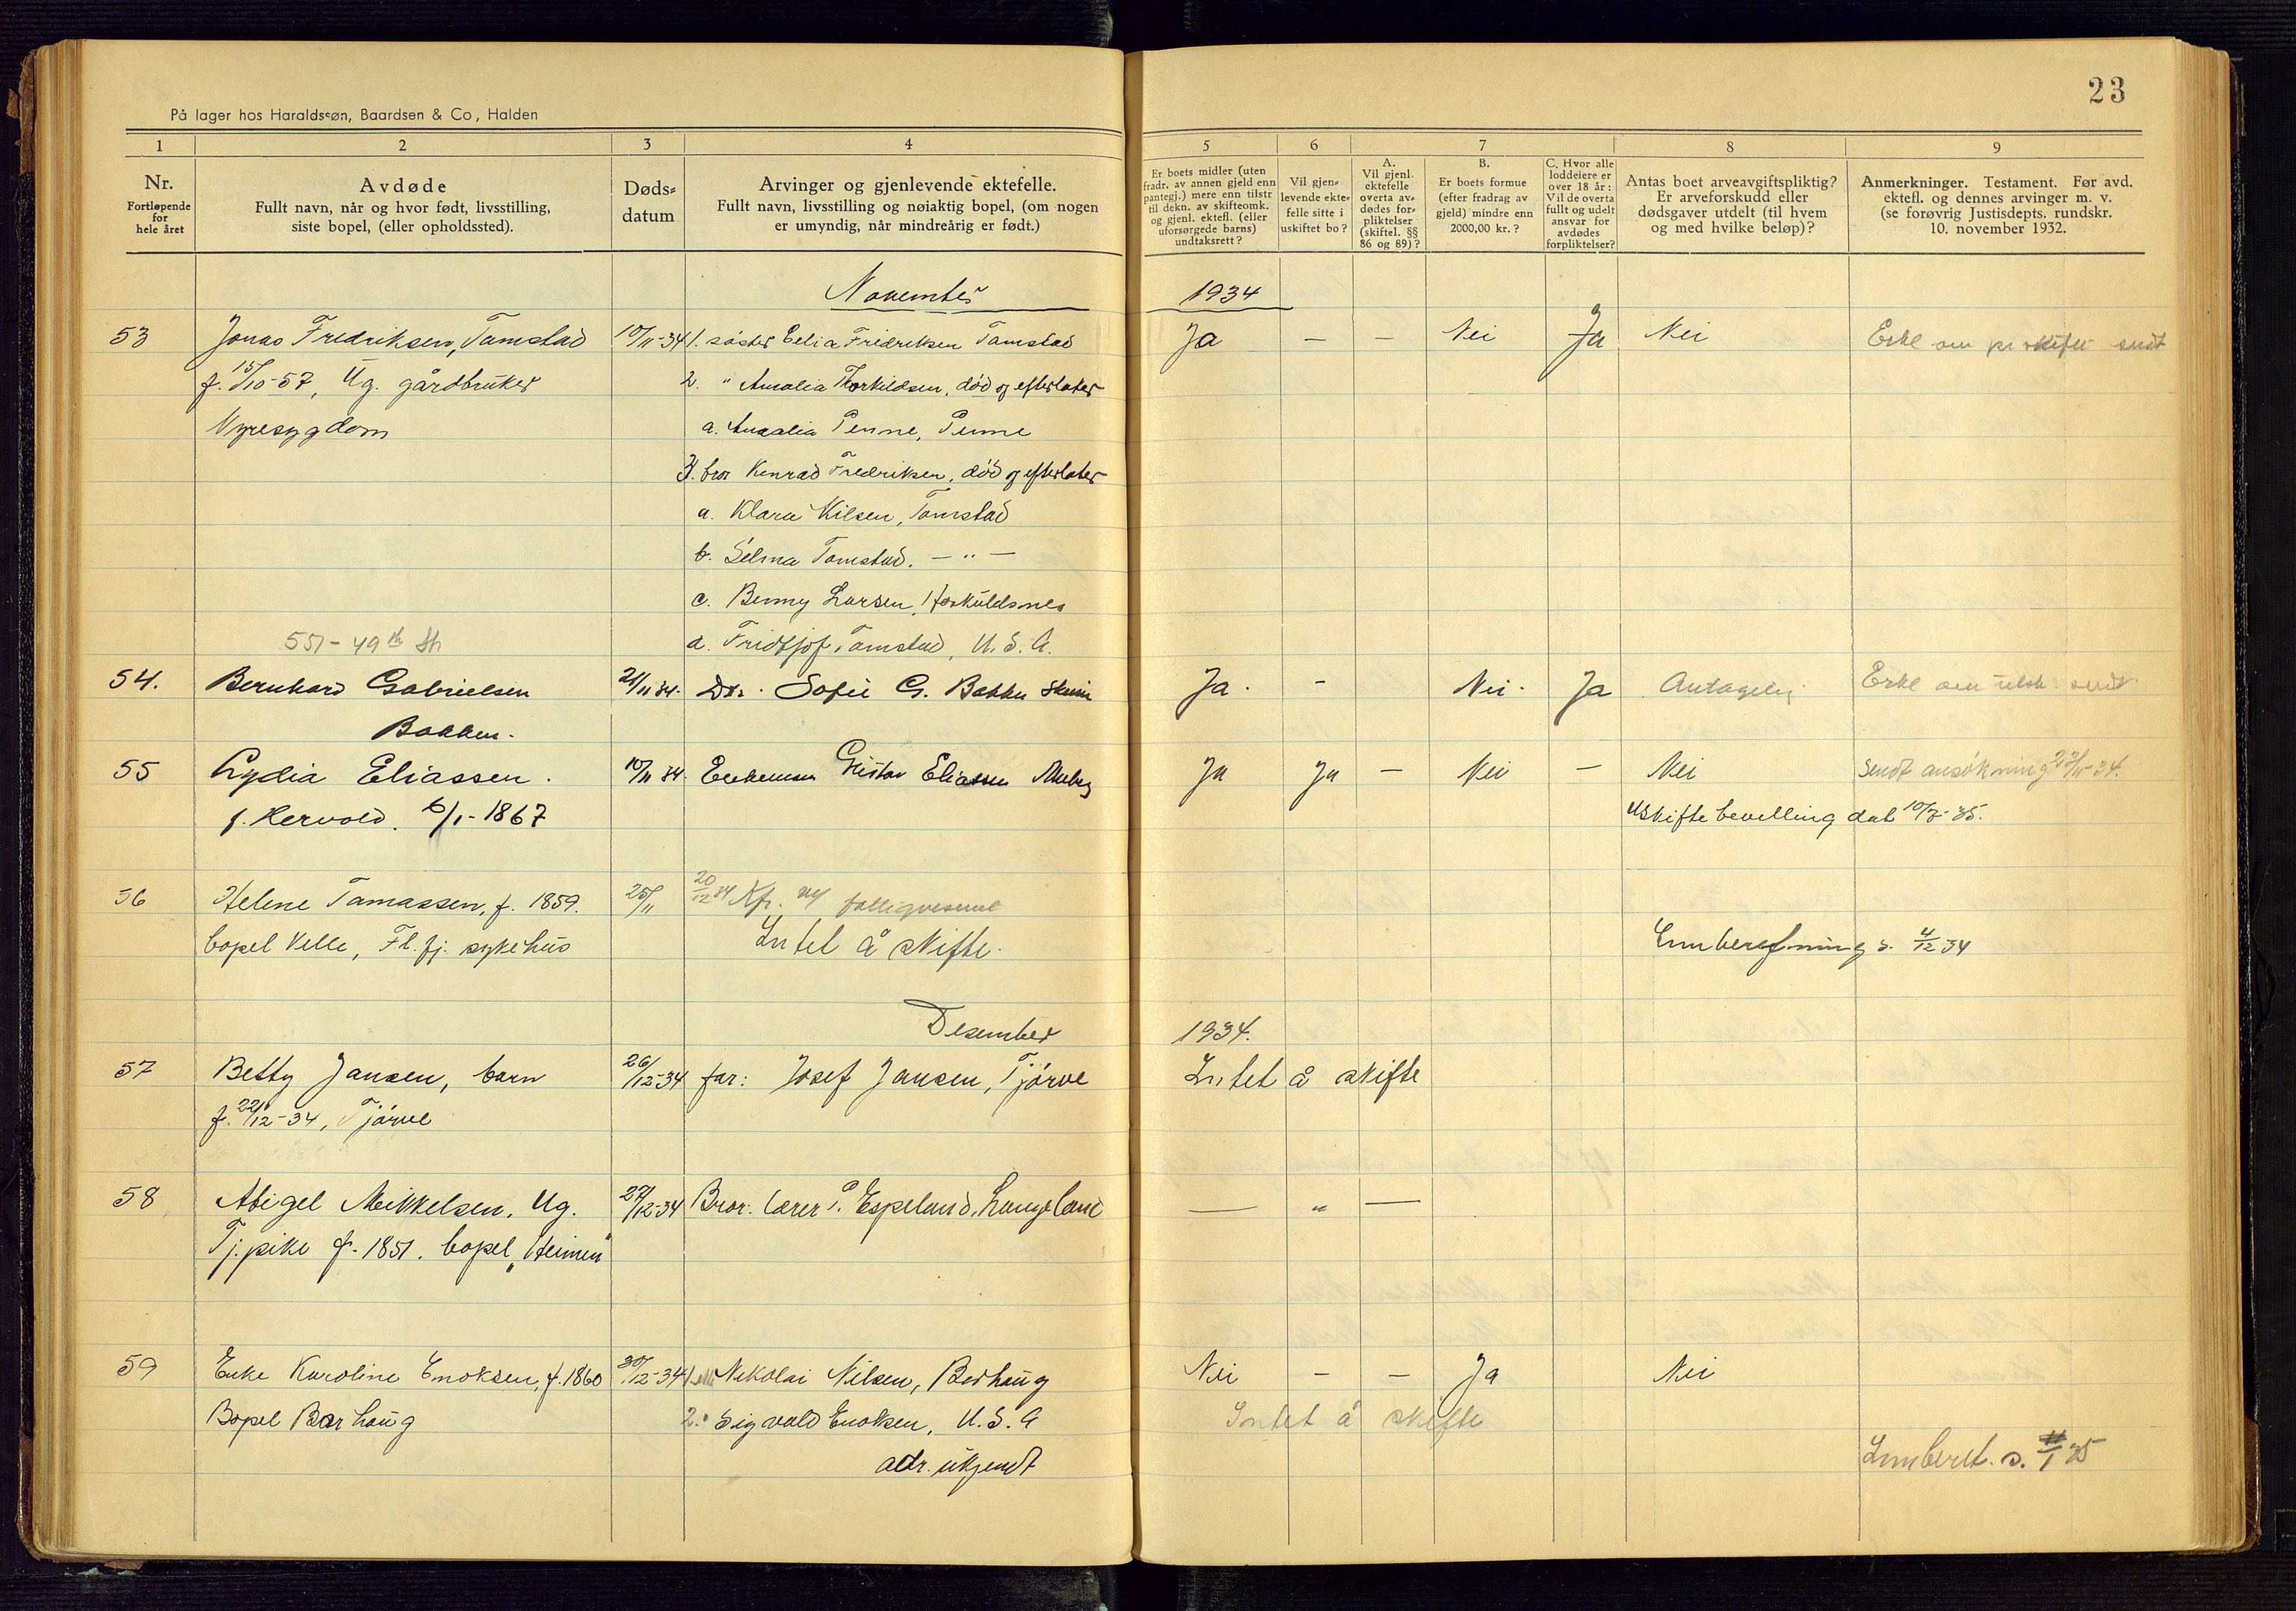 23
På lager hos Haraldssøn, Baardsen & Co, Halden
1 2 3 4 5 6 7 8 9
Nr.
Fortløpende
for
hele året
Avdøde
Fullt navn, når og hvor født, livsstilling,
siste bopel, (eller opholdssted).
Døds-
datum
Arvinger og gjenlevende ektefelle.
Fullt navn, livsstilling og nøiaktig bopel, (om nogen
er umyndig, når mindreårig er født.)
Er boets midler (uten
fradr. av annen gjeld enn
pantegj.) mere enn tilstr
til dekn. av skifteomk.
og gjenl. ektefl. (eller
uforsørgede barns)
undtaksrett?
Vil gjen-
levende ekte-
felle sitte i
uskiftet bo?
A.
Vil gjenl.
ektefelle
overta av-
dødes for-
pliktelser
(skiftel. §§
86 og 89)?
B.
Er boets formue
(efter fradrag av
gjeld) mindre enn
2000,00 kr.?
C. Hvor alle
loddeiere er
over 18 år:
Vil de overta
fullt og udelt
ansvar for
avdødes
forpliktelser?
Antas boet arveavgiftspliktig?
Er arveforskudd eller
dødsgaver utdelt (til hvem
og med hvilke beløp)?
Anmerkninger. Testament. Før avd.
ektefl. og dennes arvinger m. v.
(se forøvrig Justisdepts. rundskr.
10. november 1932.
November 1934
53 Jonas Fredriksen, Tamstad 10/11-34 1. søster Celia Fredriksen Tamstad Ja — — Nei Ja Nei Erkl om pr skifte sendt
f. 15/10-57, Ug. gårdbruker 2. " Amalia Torkildsen, død og efterlater
Nyresygdom a. Amalia Penne, Penne
3. bror Konrad Fredriksen, død og efterlater
a. Klara Nilsen, Tamstad
b. Selma Tamstad. — " —
c. Benny Larsen, Høskuldsnes
551 - 49th St d. Fridtjof Tamstad, U.S.A.
54. Bernhard Gabrielsen 21/11 34. Dtr. Sofie G. Bakken Ja. - Nei. Ja Antagelig Erkl om sendt
Bakken.
55 Lydia Eliassen. 10/11 34. Enkemann Gustav Eliassen Ja Ja — Nei — Nei Sendt ansøkning 23/11-34.
f. Hervold. 6/1-1867 Uskiftebevilling dat 10/3-35.
56 Helene Tamassen, f. 1859. 25/11 20/12 34 Kfr. fattigvesenet
bopel Velle, Fl.fj. sykehus Intet å skifte. Innberetning s. 4/12 34
Desember 1934.
57 Betty Jansen, barn 26/12-34 far: Josef Jansen, Tjørve Intet å skifte
f. 22/12-34, Tjørve
58 Abigel Mikkelsen, Ug. 27/12-34 Bror: lærer P. Espeland, Langeland — " —
Tj.pike f. 1851. bopel "Heimen"
59 Enke Karoline Enoksen, f. 1860 30/12-34 1. Nikolai Nilsen, Borhaug Nei — — Ja Nei
Bopel Borhaug 2. Sigvald Enoksen, U.S.A Intet å skifte
adr. ukjendt Innberet. s. 1/1 35